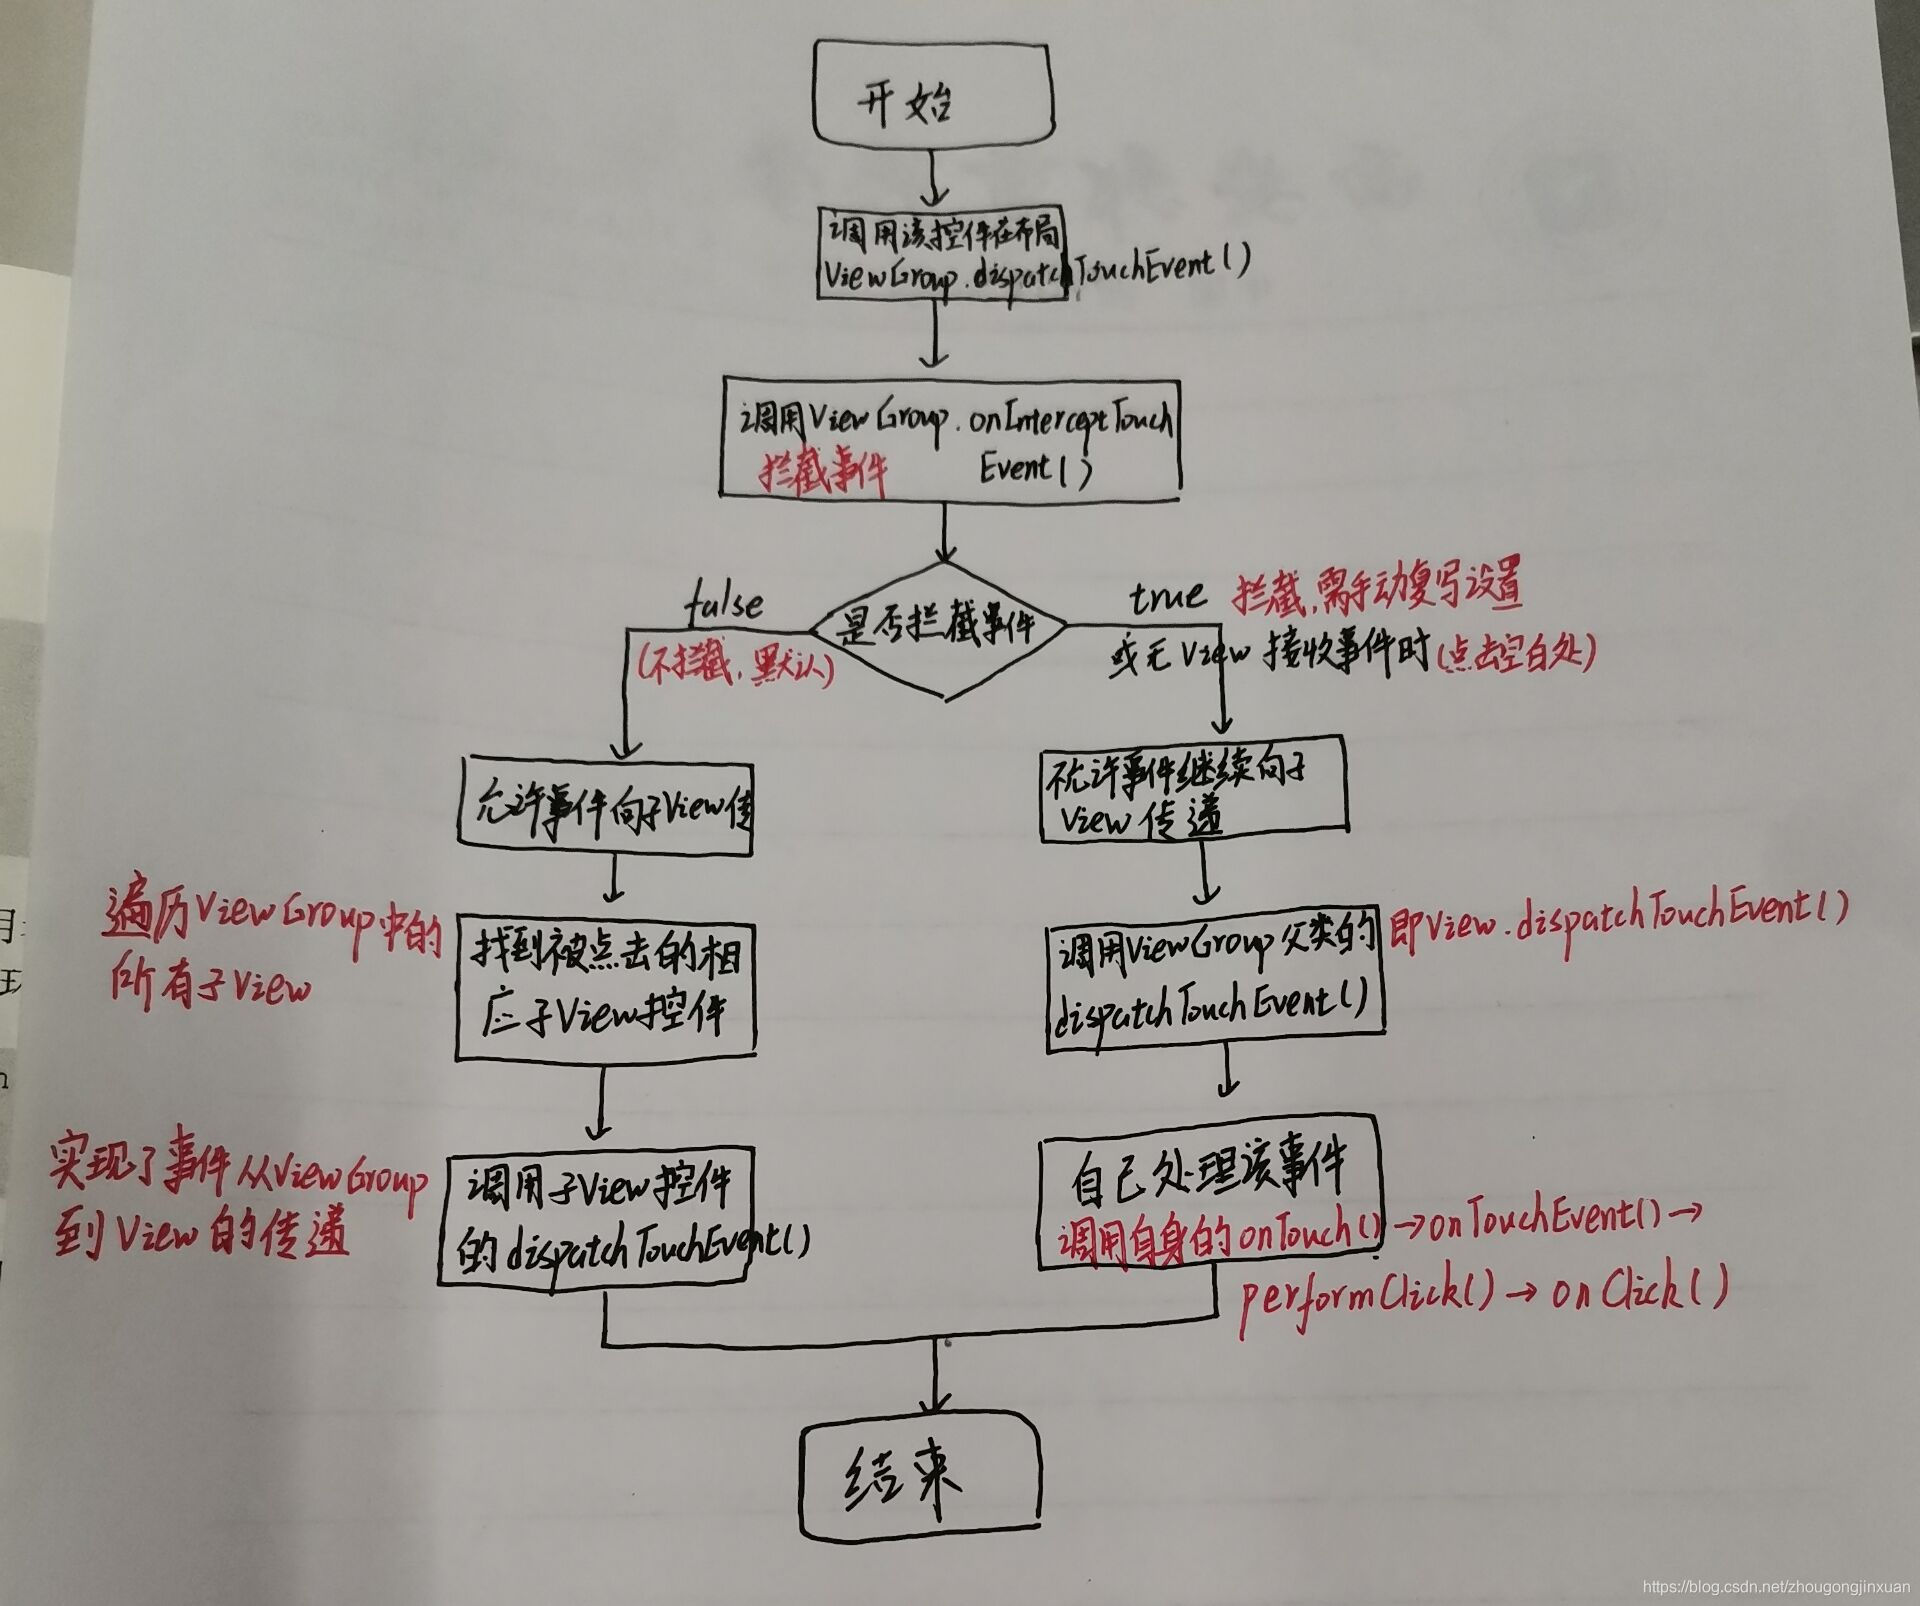 开始
调用该控件在布局
ViewGroup.dispatchTouchEvent()
调用ViewGroup.onInterceptTouch
拦截事件 Event()
false
是否拦截事件
true 拦截,需手动复写设置
(不拦截,默认)
或无View接收事件时(点击空白处)
允许事件向子View传
不允许事件继续向子
View传递
遍历ViewGroup中的
所有子View
找到被点击的相
应子View控件
调用ViewGroup父类的
dispatchTouchEvent()
即View.dispatchTouchEvent()
实现了事件从ViewGroup
到View的传递
调用子View控件
的dispatchTouchEvent()
自己处理该事件
调用自身的onTouch()→onTouchEvent()→
performClick()→onClick()
结束
https://blog.csdn.net/zhougongjinxuan